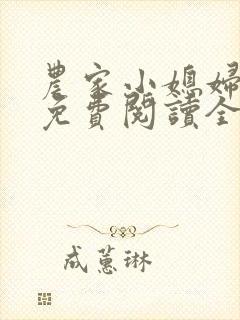 農家小媳婦
免費閱讀全
成蕙琳